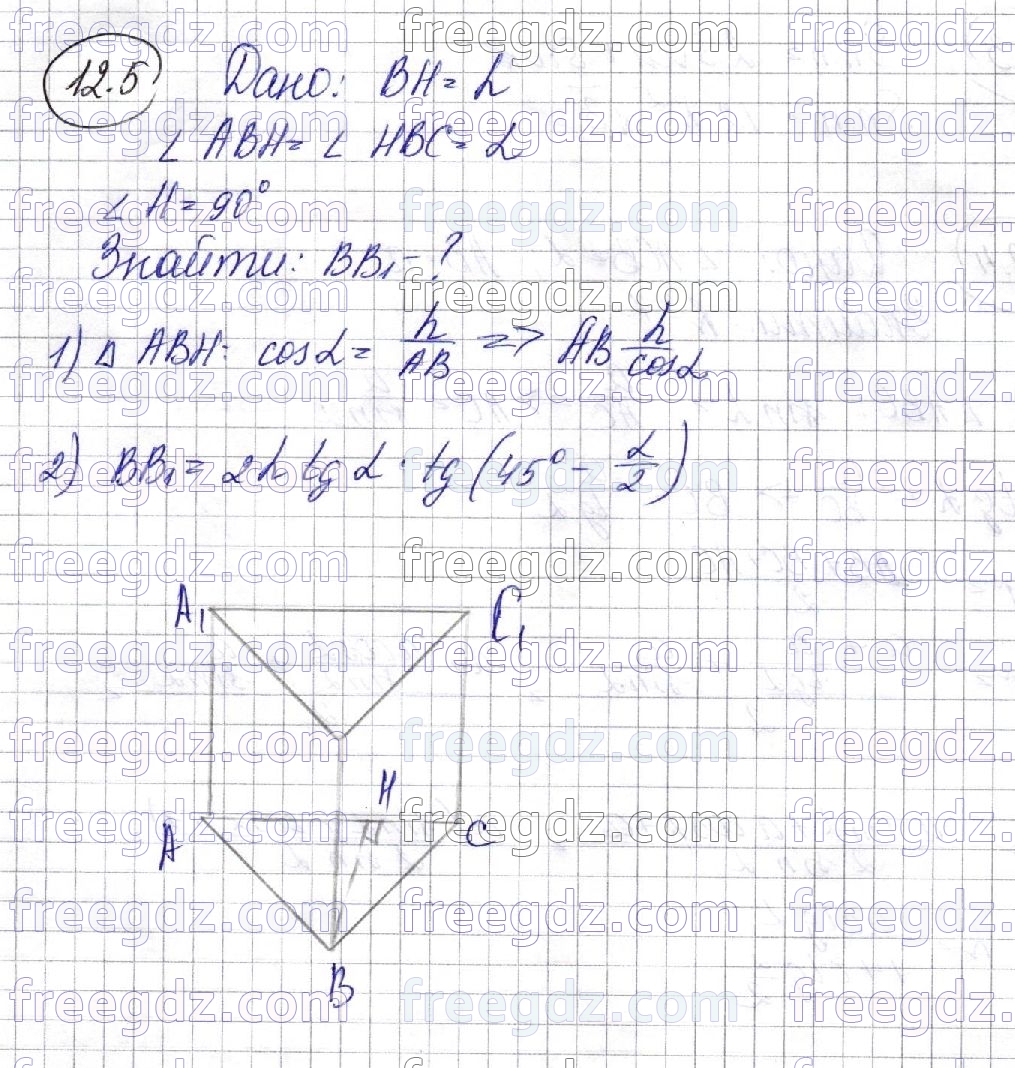 12.5 Дано: BH = h
∠ ABH = ∠ HBC = α
∠ H = 90°
Знайти: BB₁ - ?
1) Δ ABH: cos α = h/AB => AB h/cos α
2) BB₁ = 2h tg α · tg (45° - α/2)
A₁ C₁
H
A C
B
freegdz.com